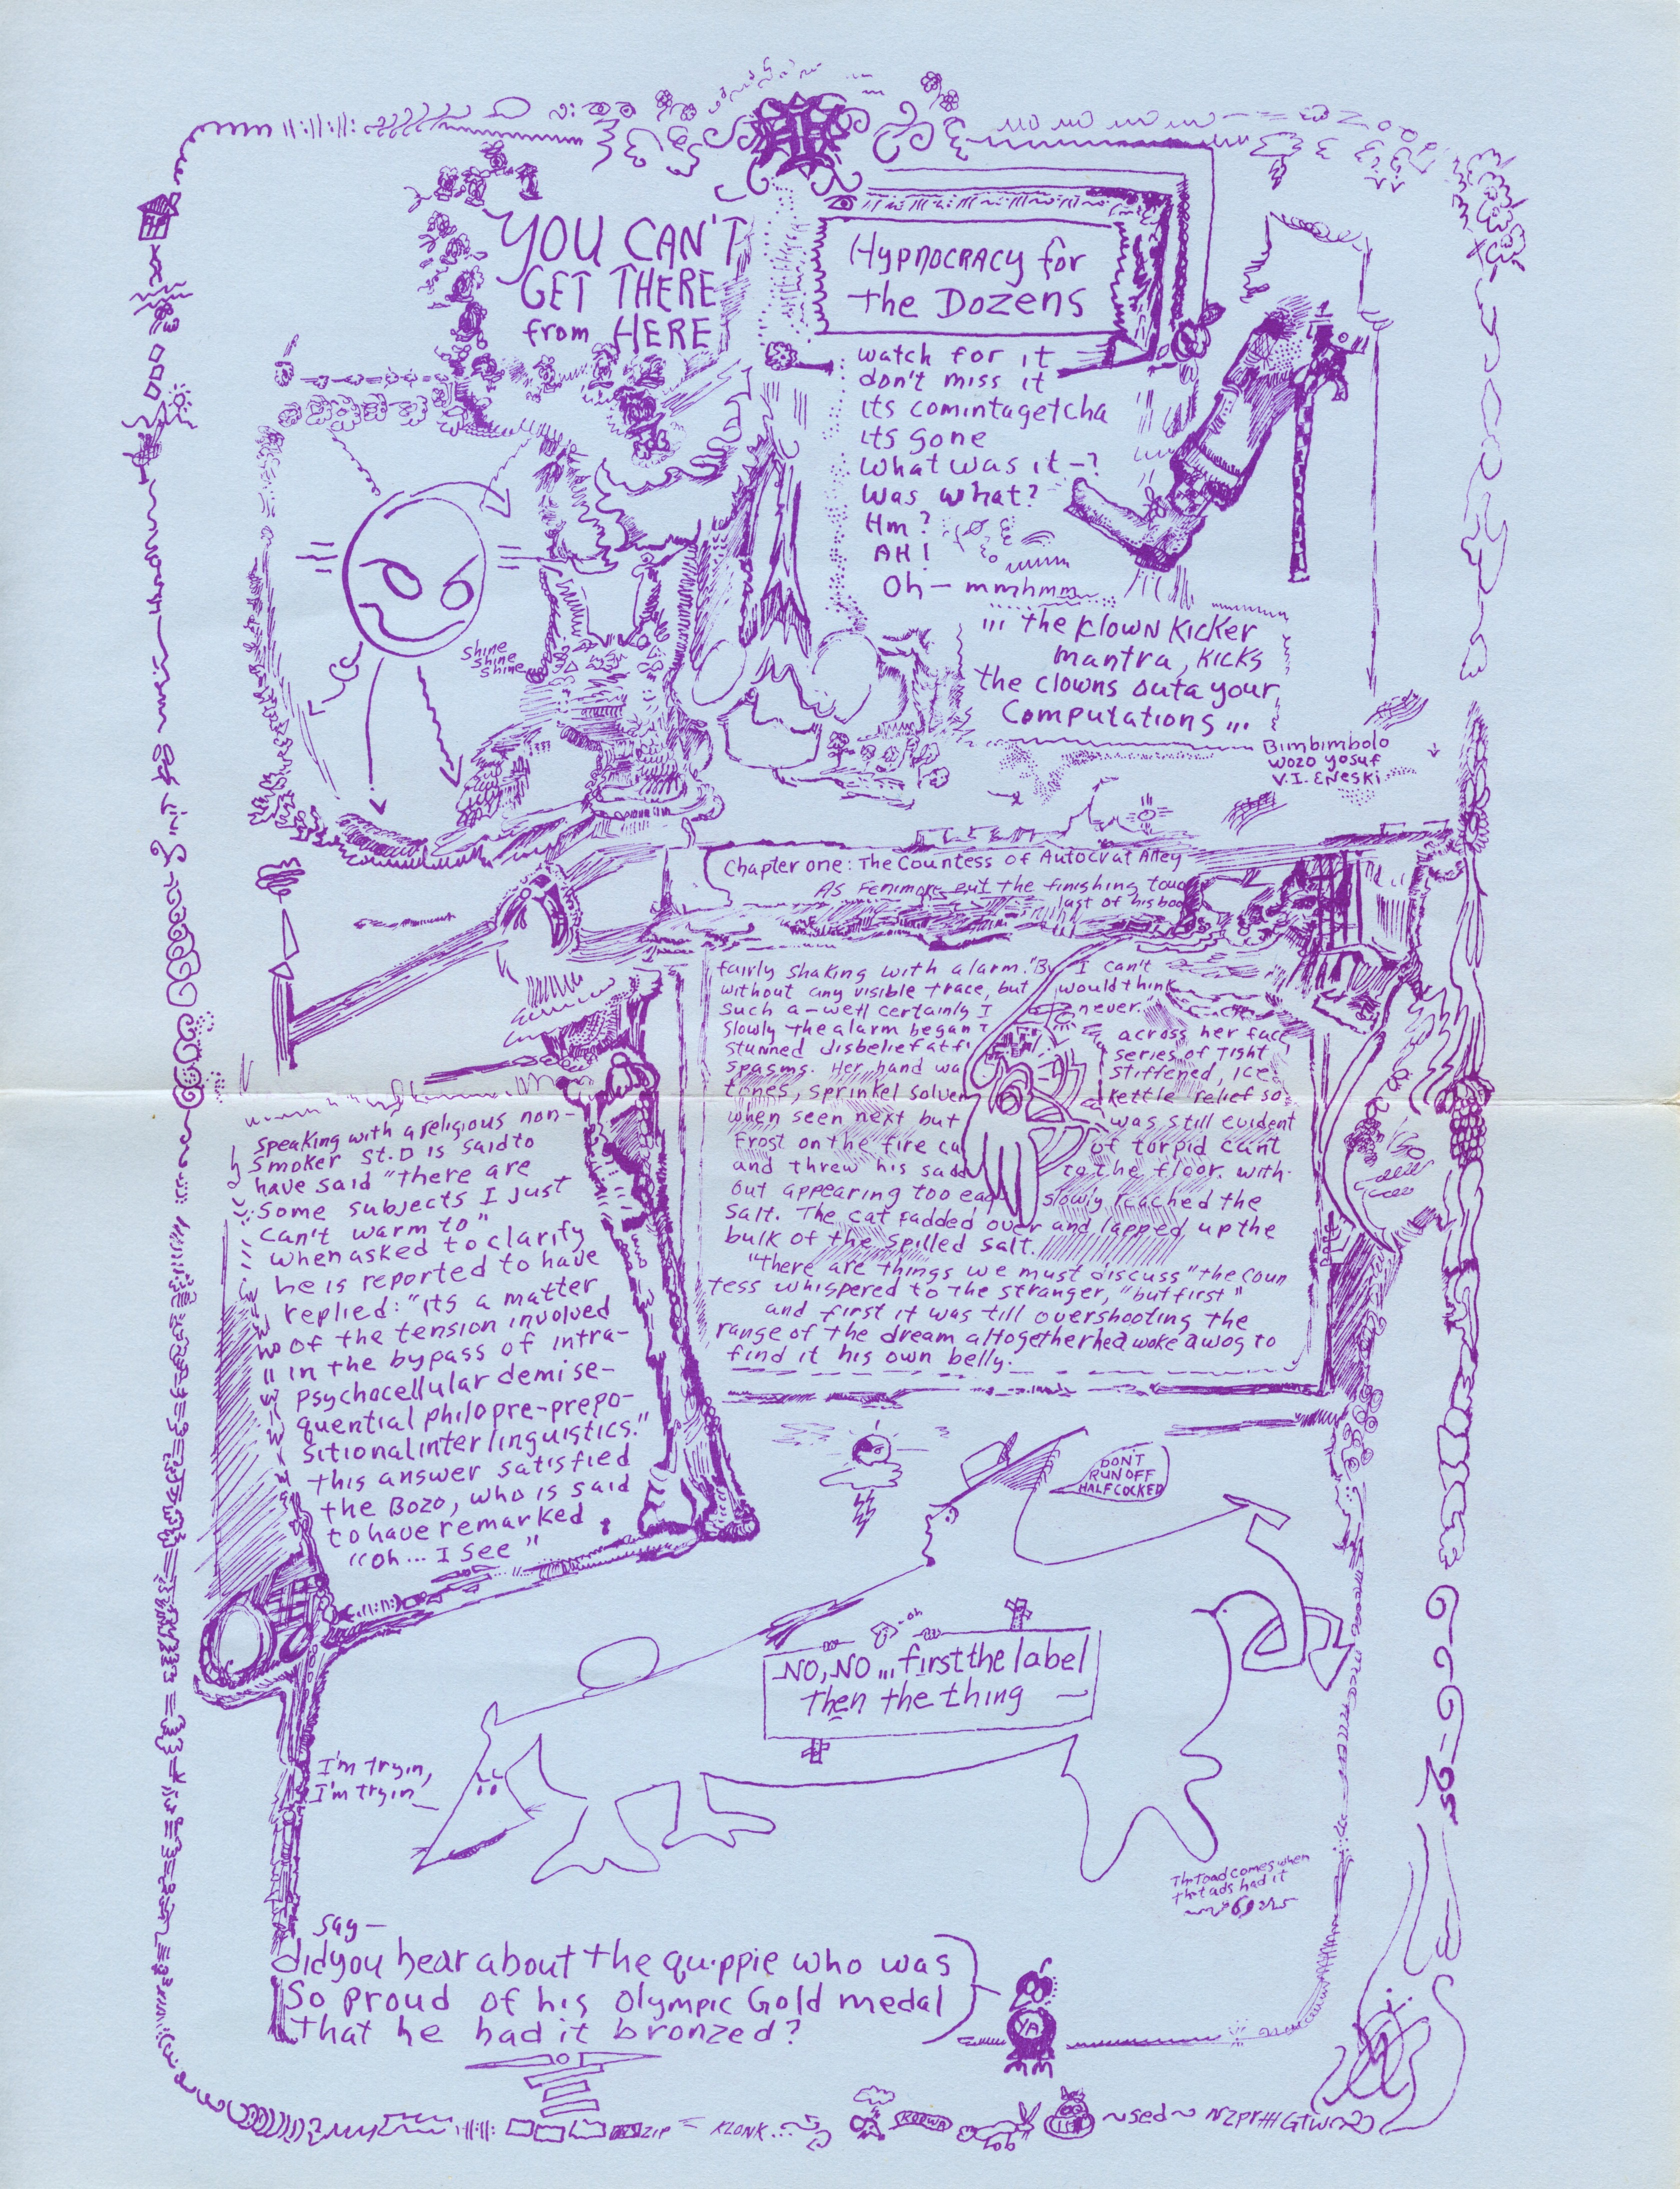 YOU CAN'T
GET THERE
from HERE
Hypnocracy for
the Dozens
watch for it
don't miss it
its comintagetcha
its gone
What was it–?
Was what?
Hm?
AH!
Oh – mmhmm
... the Klown Kicker
mantra, kicks
the clowns outa your
Computations ...
Bimbimbolo
wozo yosuf
V.I. ENeski
Shine
Shine
Shine
Chapter one: The Countess of Autocrat Alley
As Fenimore put the finishing touc
last of his boo
fairly shaking with alarm. "By I can't
without any visible trace, but would think
such a – well certainly I never.
Slowly the alarm began across her face
stunned disbelief at fi series of Tight
spasms. Her hand wa stiffened, ice
tones, sprinkel solven kettle relief so
when seen next but was still evident
Frost on the fire ca of torpid cant
and threw his sadd to the floor. with-
out appearing too eag slowly reached the
salt. The cat padded over and lapped up the
bulk of the spilled salt.
"there are things we must discuss" the Coun
tess whispered to the stranger, "but first"
and first it was till overshooting the
range of the dream altogether hed woke awog to
find it his own belly.
Speaking with a religious non-
smoker St. D is said to
have said "there are
some subjects I just
can't warm to"
when asked to clarify
he is reported to have
replied: "its a matter
of the tension involved
in the bypass of intra-
psychocellular demise-
quential philo pre-prepo-
sitional interlinguistics."
this answer satisfied
the Bozo, who is said
to have remarked
"oh ... I see"
DON'T
RUN OFF
HALF COCKED
oh
NO, NO ... first the label
then the thing
I'm tryin,
I'm tryin
The Toad comes when
had it
say –
didyou hear about the quippie who was
So proud of his Olympic Gold medal
that he had it bronzed?
YA
ZIP = KLONK
~sed~